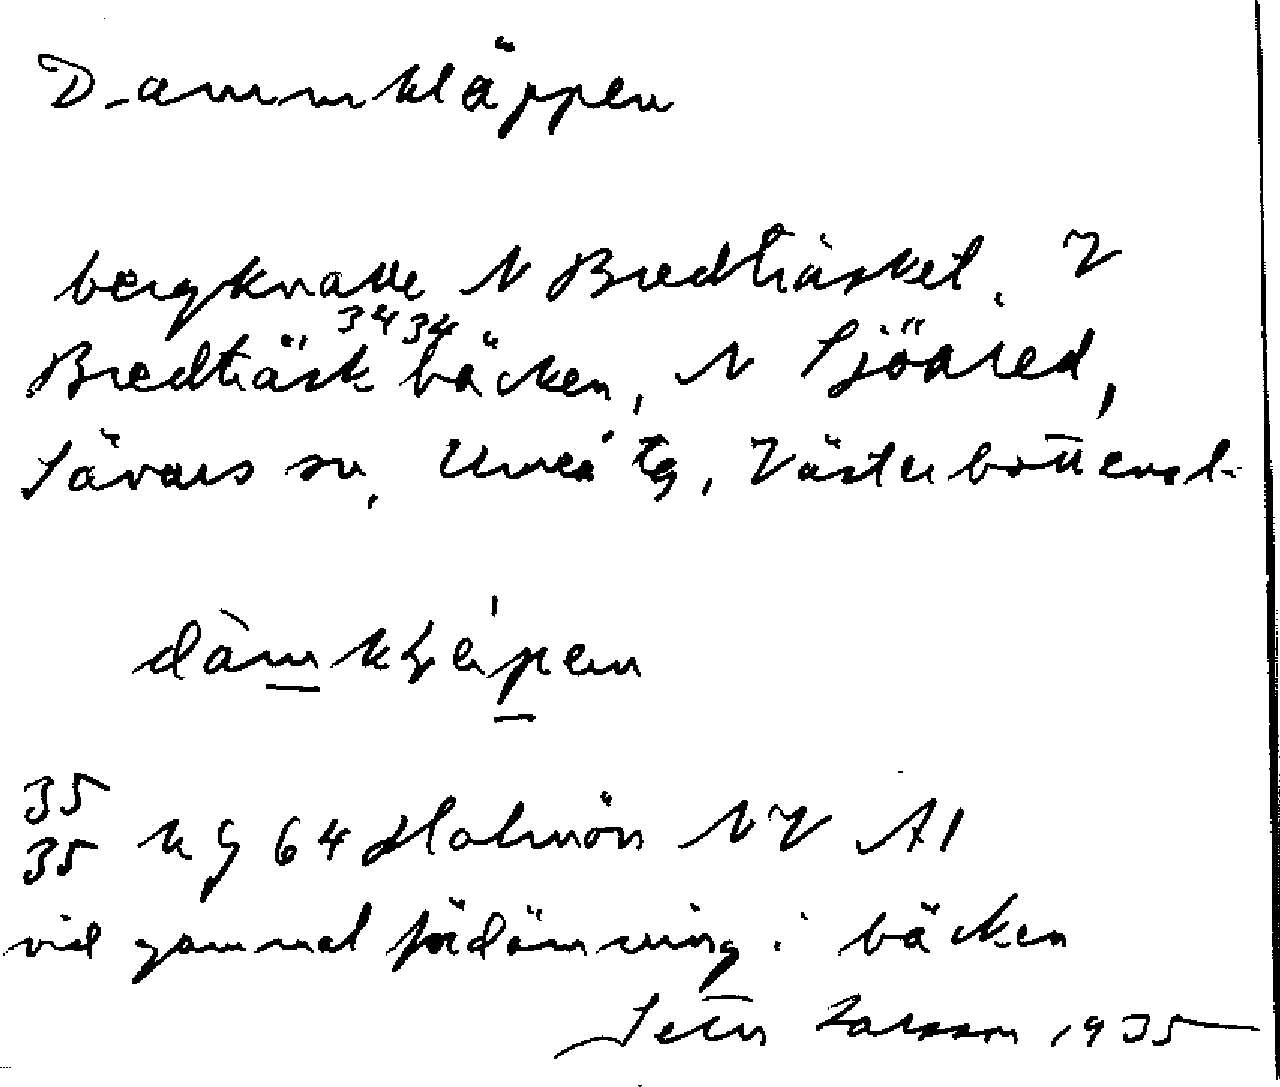 Dammkläppen
bergknalle N Bredträsket, V
34 34
Bredträskbäcken, N Sjöåred,
Sävars sn, Umeå tg, Västerbottensl.
35
35 kg 64 Holmön NV A1
vid gammal fördämning i bäcken
Larsson 1935